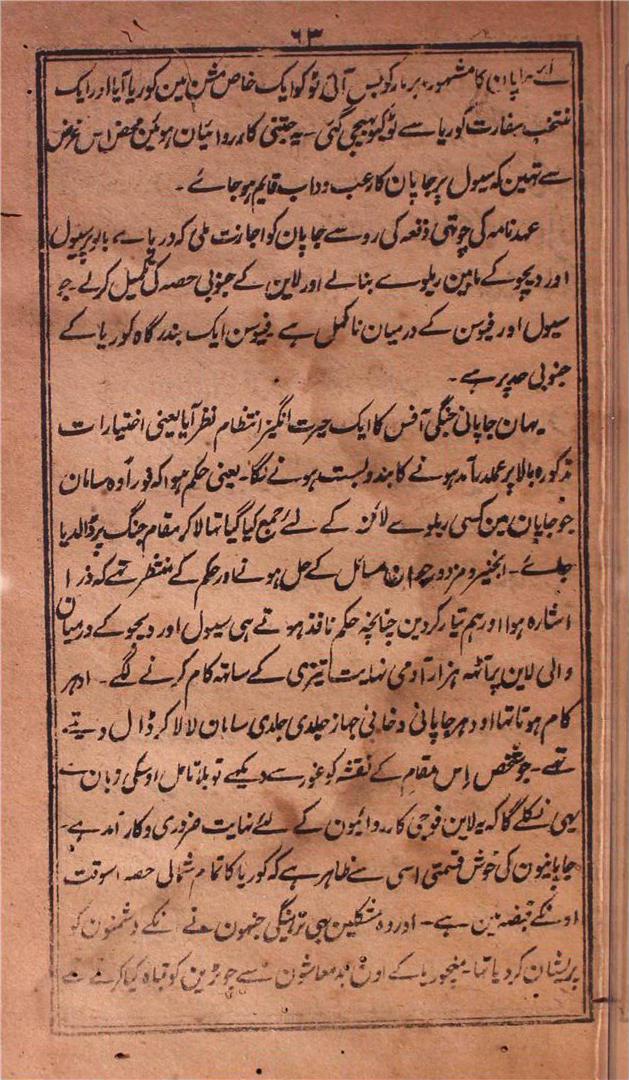 ۶۳
جاپان کا مشہور مدبر مارکویس آئی ٹو کو ایک خاص مشن مین کوریا آیا اور ایک
منتخب سفارت کوریا سے ٹوکیو بھیجی گئی ۔ یہ جتنی کارروائیان ہوئین محض اس غرض
سے تہین کہ سیول پر جاپان کا رعب وداب قایم ہو جائے ۔
عہدنامہ کی چوتہی دفعہ کی رو سے جاپان کو اجازت ملی کہ دریاے یالو پر سیول
اور ویجو کے مابین ریلوے بنالے اور لاین کے جنوبی حصہ کی تکمیل کرلے جو
سیول اور فیوسن کے درمیان نا مکمل ہے فیوسن ایک بندرگاہ کوریا کے
جنوبی حد پر ہے ۔
یہان جاپانی جنگی آفس کا ایک حیرت انگیز انتظام نظر آیا یعنی اختیارات
مذکورہ بالا پر عملدرآمد ہونے کا بندوبست ہونے لگا ۔ یعنی حکم ہوا کہ فوراً وہ سامان
جو جاپان مین کسی ریلوے لائن کے لئے جمع کیا گیا تہا لاکر مقام جنگ پر ڈالدیا
جائے ۔ انجنیر و مزدور جو ان مسائل کے حل ہونے اور حکم کے منتظر تہے کہ ذرا
اشارہ ہوا اور ہم تیار کردین چنانچہ حکم نافذ ہوتے ہی سیول اور ویجو کے درمیان
والی لاین پر آٹہہ ہزار آدمی نہایت تیزی کے ساتہ کام کرنے لگے ۔ ادہر
کام ہوتا تہا اودہر جاپانی دخانی جہاز جلدی جلدی سامان لا لا کر ڈال دیتے
تہے ۔ جو شخص اِس مقام کے نقشہ کو غور سے دیکہے تو بلا تامل اوسکی زبان سے
یہی نکلے گا کہ یہ لاین فوجی کارروائیون کے لئے نہایت ضروری و کار آمد ہے ۔
جاپانیون کی خوش قسمتی اسی سے ظاہر ہے کہ کوریا کا تمام شمالی حصہ اسوقت
اونکے قبضہ مین ہے ۔ اور وہ مشکلین بہی نہ جنہون نے انکے دشمنون کو
پریشان کردیا تہا ۔ منچوریا کے اون بدمعاشون سے جو ٹرین کو تباہ کیا کرتے تہے